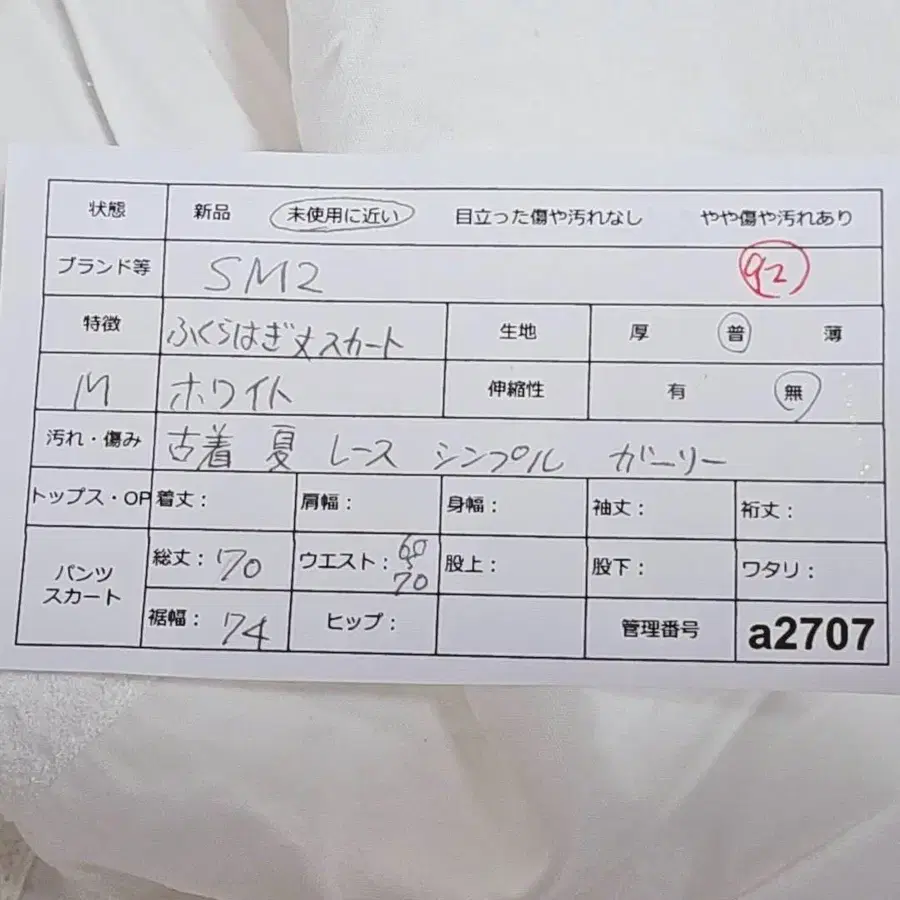 状態 新品 未使用に近い 目立った傷や汚れなし やや傷や汚れあり
ブランド等 SM2 92
特徴 ふくらはぎ丈スカート 生地 厚 普 薄
M ホワイト 伸縮性 有 無
汚れ・傷み 古着 夏 レース シンプル ガーリー
トップス・OP 着丈: 肩幅: 身幅: 袖丈: 裄丈:
パンツ スカート 総丈: 70 ウエスト: 60 〜 70 股上: 股下: ワタリ:
裾幅: 74 ヒップ: 管理番号 a2707